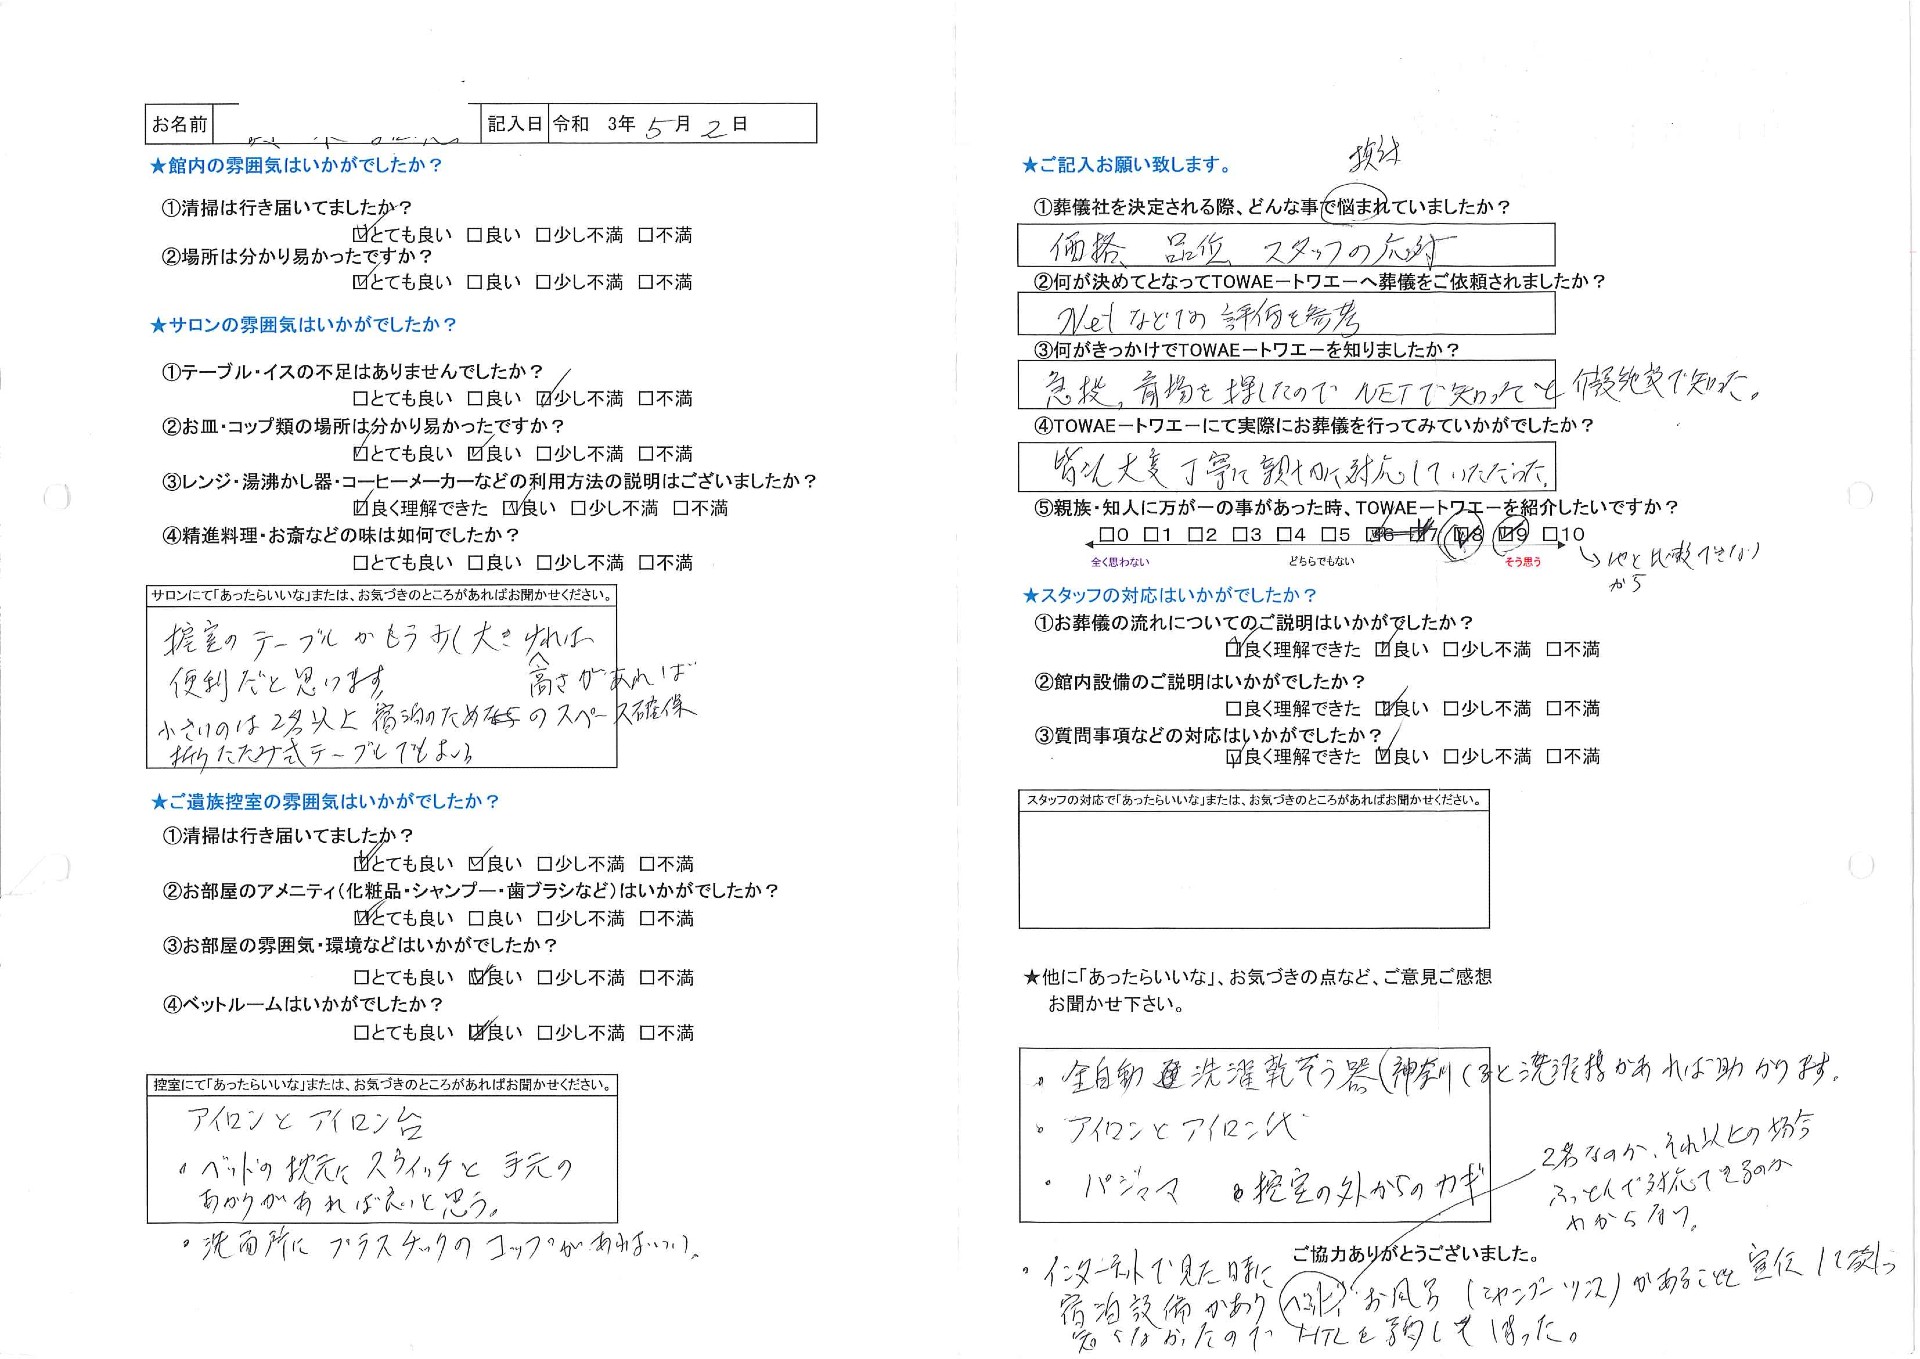 お名前
記入日 令和 3年 5月 2日
★館内の雰囲気はいかがでしたか？
①清掃は行き届いてましたか？
☑とても良い □良い □少し不満 □不満
②場所は分かり易かったですか？
☑とても良い □良い □少し不満 □不満
★サロンの雰囲気はいかがでしたか？
①テーブル・イスの不足はありませんでしたか？
□とても良い □良い ☑少し不満 □不満
②お皿・コップ類の場所は分かり易かったですか？
☑とても良い ☑良い □少し不満 □不満
③レンジ・湯沸かし器・コーヒーメーカーなどの利用方法の説明はございましたか？
☑良く理解できた ☑良い □少し不満 □不満
④精進料理・お斎などの味は如何でしたか？
□とても良い □良い □少し不満 □不満
サロンにて「あったらいいな」または、お気づきのところがあればお聞かせください。
控室のテーブルがもう少し大きければ
便利だと思います。 高さがあれば
小さいのは2名以上宿泊のため のスペース確保
折りたたみ式テーブルでもよい
★ご遺族控室の雰囲気はいかがでしたか？
①清掃は行き届いてましたか？
☑とても良い ☑良い □少し不満 □不満
②お部屋のアメニティ（化粧品・シャンプー・歯ブラシなど）はいかがでしたか？
☑とても良い □良い □少し不満 □不満
③お部屋の雰囲気・環境などはいかがでしたか？
□とても良い ☑良い □少し不満 □不満
④ベットルームはいかがでしたか？
□とても良い ☑良い □少し不満 □不満
控室にて「あったらいいな」または、お気づきのところがあればお聞かせください。
アイロンとアイロン台
・ベッドの枕元にスウィッチと手元の
あかりがあれば良いと思う。
・洗面所にプラスチックのコップがあればいい。
★ご記入お願い致します。
検討
①葬儀社を決定される際、どんな事で悩まれていましたか？
価格、品位、スタッフの応対
②何が決めてとなってTOWAEートワエーへ葬儀をご依頼されましたか？
Netなどでの評価を参考
③何がきっかけでTOWAEートワエーを知りましたか？
急拠、斎場を探したのでNETで知ってと介護施設で知った。
④TOWAEートワエーにて実際にお葬儀を行ってみていかがでしたか？
皆さん大変丁寧に親切に対応していただいた。
⑤親族・知人に万が一の事があった時、TOWAEートワエーを紹介したいですか？
□0 □1 □2 □3 □4 □5 ☑6 ☑7 ☑8 ☑9 □10
全く思わない どちらでもない そう思う
↳他と比較できない
から
★スタッフの対応はいかがでしたか？
①お葬儀の流れについてのご説明はいかがでしたか？
☑良く理解できた ☑良い □少し不満 □不満
②館内設備のご説明はいかがでしたか？
□良く理解できた ☑良い □少し不満 □不満
③質問事項などの対応はいかがでしたか？
☑良く理解できた ☑良い □少し不満 □不満
スタッフの対応で「あったらいいな」または、お気づきのところがあればお聞かせください。
★他に「あったらいいな」、お気づきの点など、ご意見ご感想
お聞かせ下さい。
・全自動洗濯乾そう器 と洗濯機があれば助かります。
・アイロンとアイロン代
・パジャマ ・控室の外からのカギ
2名なのか、それ以上の場合
ふっとんで対応できるのか
わからない。
ご協力ありがとうございました。
・インターネットで見た時に
宿泊設備があり ベッド、お風呂（シャンプーリンス）があることを宣伝して欲しい
なかったので HTLを予約してしまった。